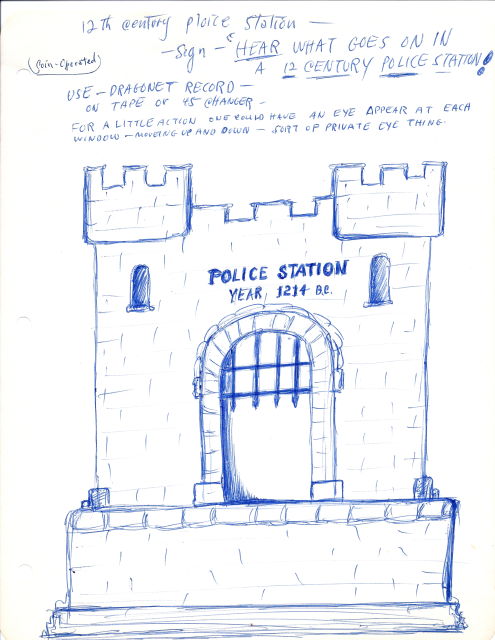 12th century ploice station —
— Sign — "HEAR WHAT GOES ON IN
(Coin-Operated)
A 12 CENTURY POLICE STATION!
USE — DRAGONET RECORD —
ON TAPE or 45 CHANGER —
FOR A LITTLE ACTION ONE COULD HAVE AN EYE APPEAR AT EACH
WINDOW — MOVEING UP AND DOWN — SORT OF PRIVATE EYE THING.
POLICE STATION
YEAR, 1214 B.C.